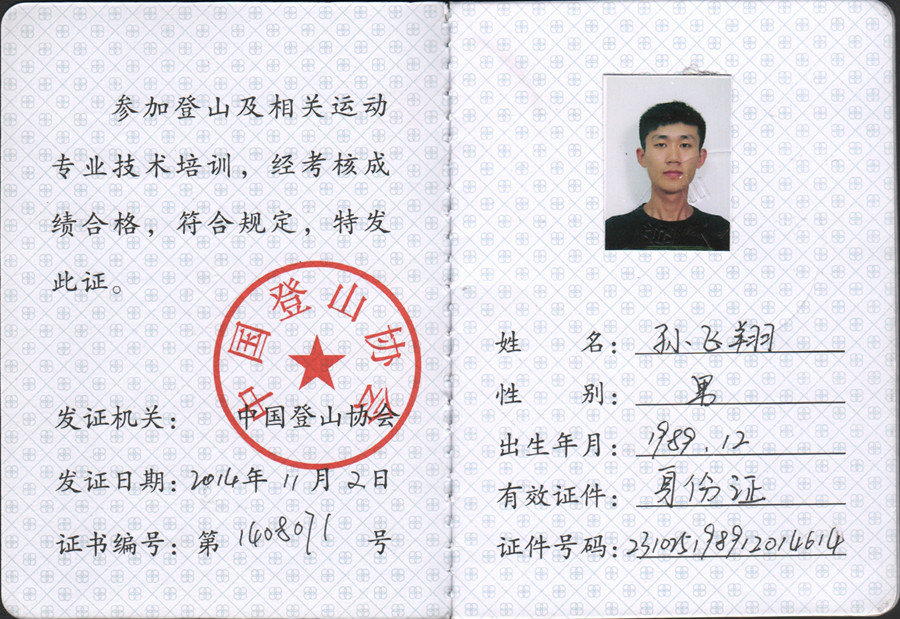 参加登山及相关运动
专业技术培训，经考核成
绩合格，符合规定，特发
此证。
中国登山协会
发证机关：中国登山协会
发证日期：2014年11月2日
证书编号：第1408071号
姓名：孙飞翔
性别：男
出生年月：1989.12
有效证件：身份证
证件号码：231025198912014614